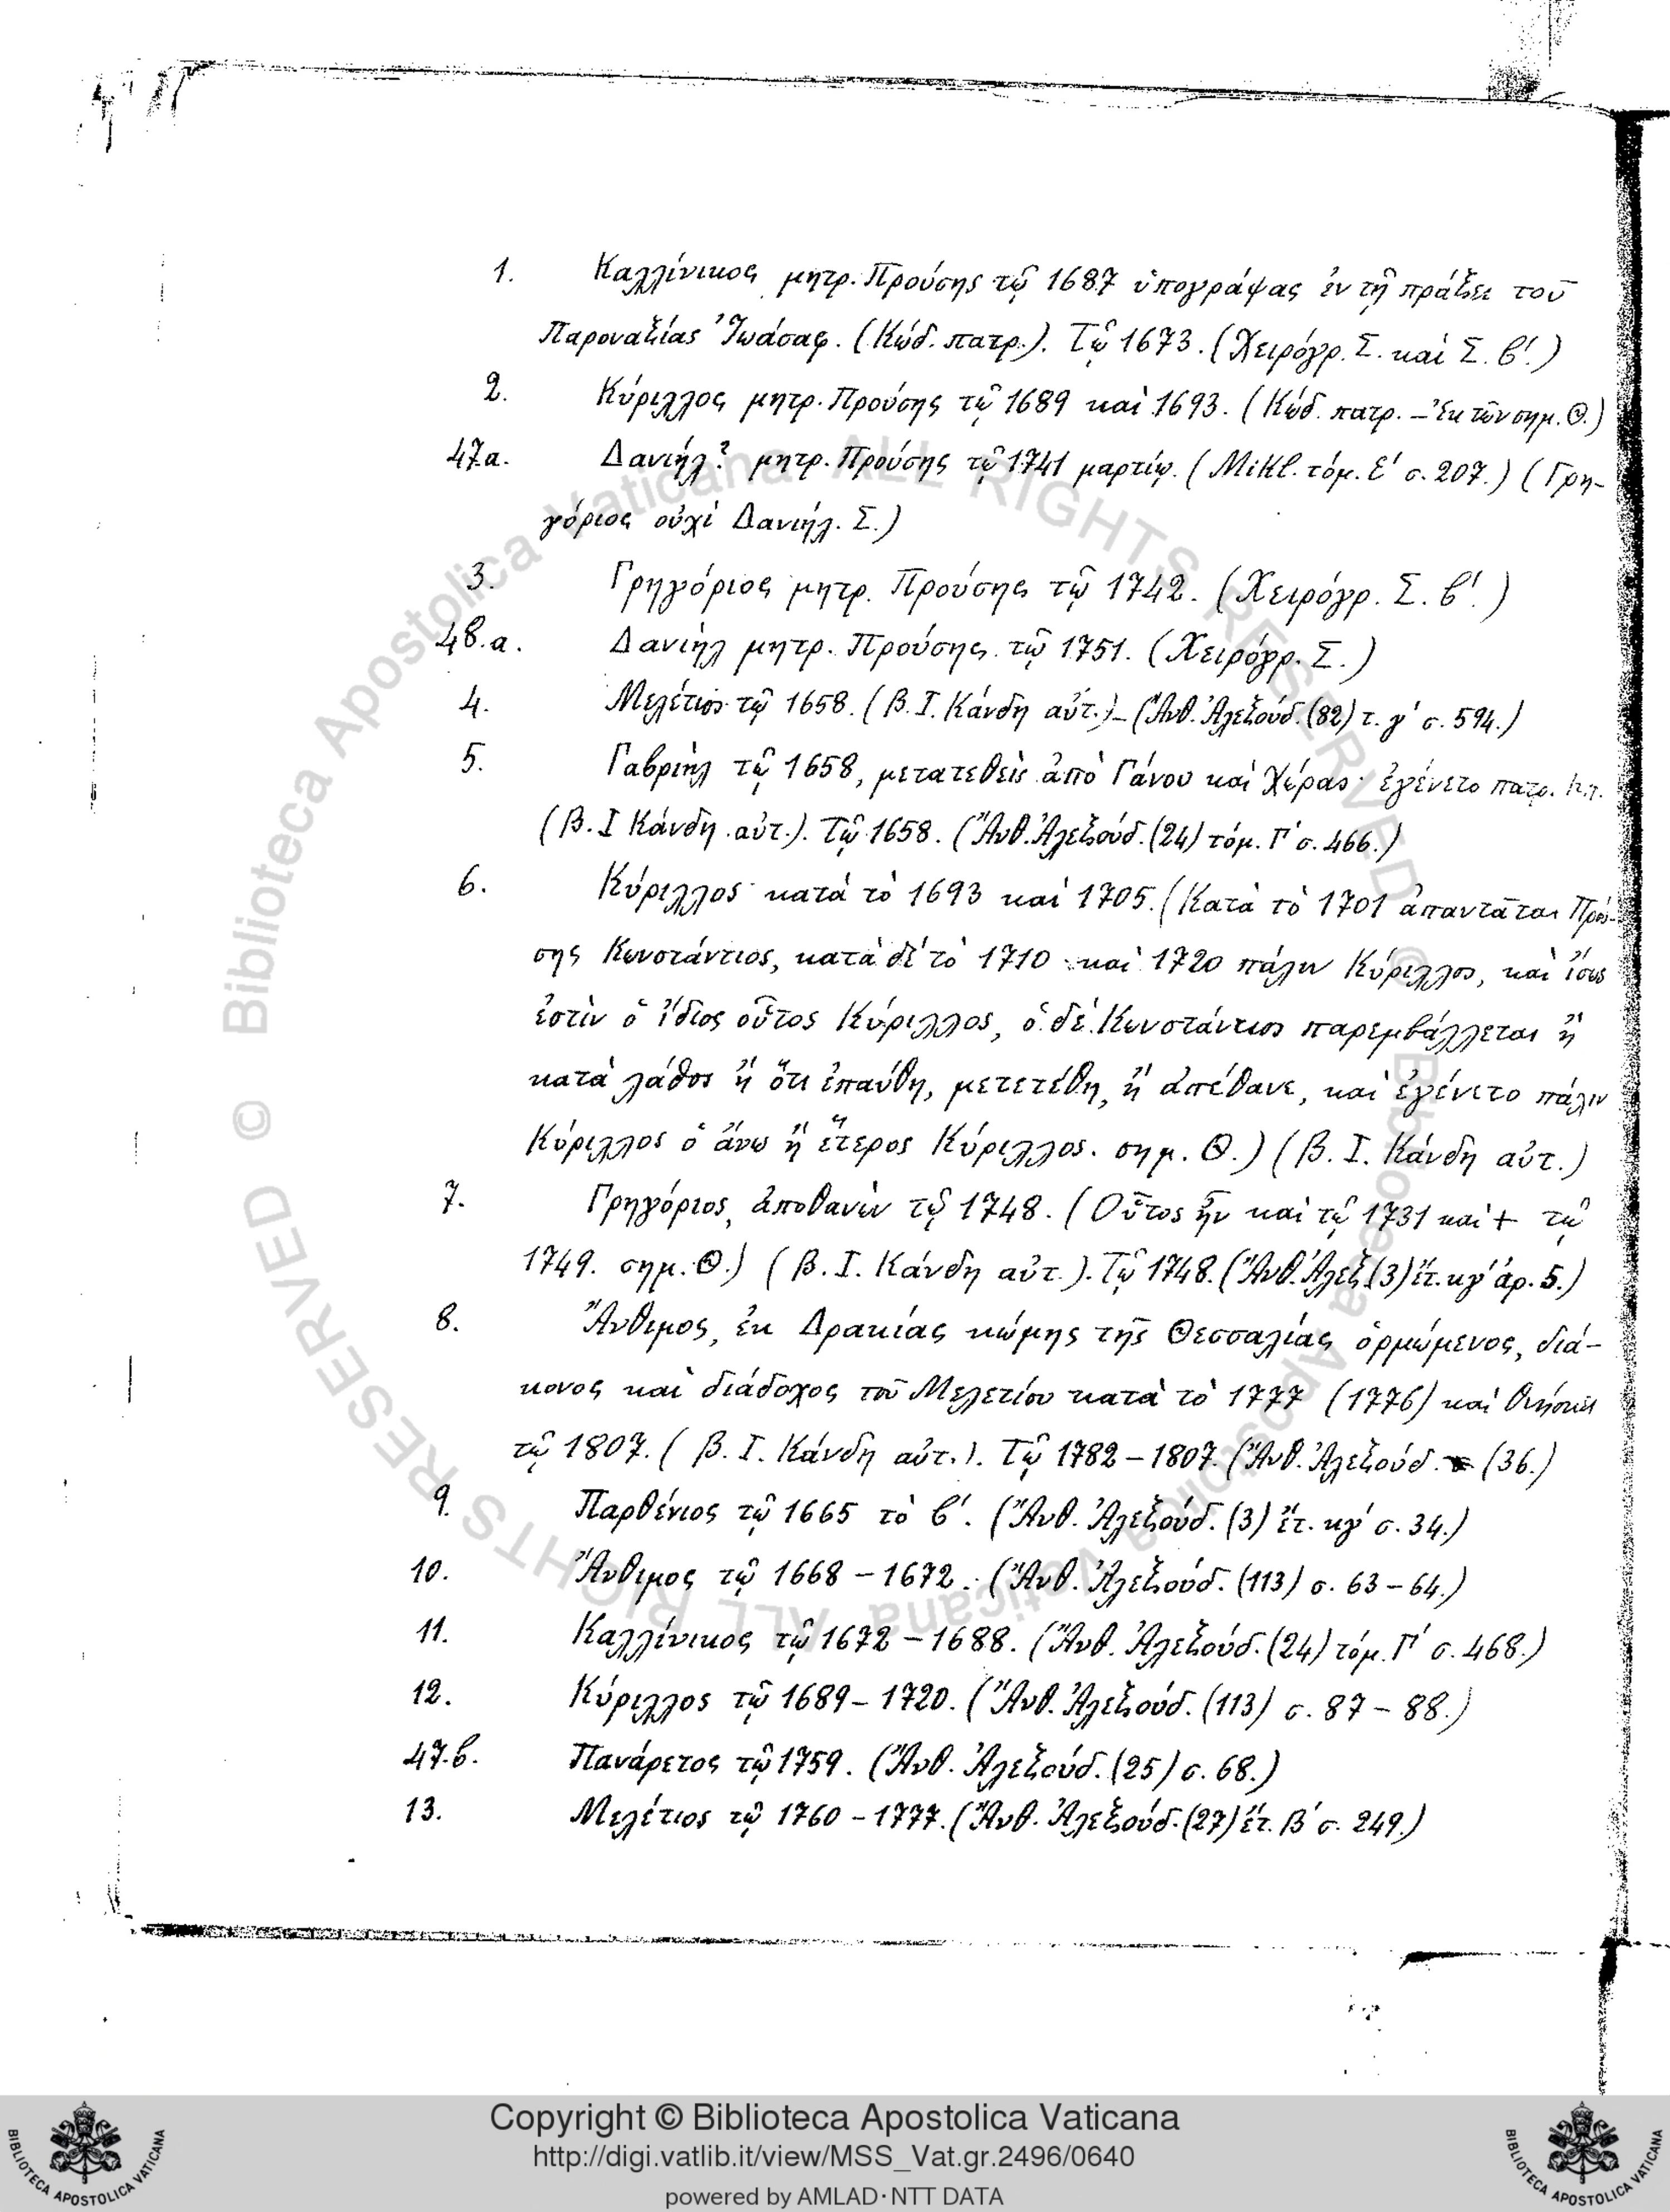 1. Καλλίνικος μητρ. Προύσης τῷ 1687 ὑπογράψας ἐν τῇ πράξει τοῦ
Παροναξίας Ἰωάσαφ. (Κώδ. πατρ.). Τῷ 1673. (Χειρόγρ. Σ. καὶ Σ. β'.)
2. Κύριλλος μητρ. Προύσης τῷ 1689 καὶ 1693. (Κώδ. πατρ. – Ἐκ τῶν σημ. Θ.)
47.α. Δανιήλ? μητρ. Προύσης τῷ 1741 μαρτίῳ. (MiKl. τόμ. Ε' σ. 207.) (Γρη-
γόριος οὐχὶ Δανιήλ. Σ.)
3. Γρηγόριος μητρ. Προύσης τῷ 1742. (Χειρόγρ. Σ. β'.)
48.α. Δανιὴλ μητρ. Προύσης τῷ 1751. (Χειρόγρ. Σ.)
4. Μελέτιος τῷ 1658. (Β. Ι. Κάνδη αὐτ.) – (Ἄνθ. Ἀλεξούδ. (82) τ. γ' σ. 594.)
5. Γαβριὴλ τῷ 1658, μετατεθεὶς ἀπὸ Γάνου καὶ Χώρας· ἐγένετο πατρ. Κπ.
(Β. Ι Κάνδη αὐτ.). Τῷ 1658. (Ἄνθ. Ἀλεξούδ. (24) τόμ. Γ' σ. 466.)
6. Κύριλλος κατὰ τὸ 1693 καὶ 1705. (Κατὰ τὸ 1701 ἀπαντᾶται Πρού-
σης Κωνστάντιος, κατὰ δὲ τὸ 1710 καὶ 1720 πάλιν Κύριλλος, καὶ ἴσως
ἐστὶν ὁ ἴδιος οὗτος Κύριλλος, ὁ δὲ Κωνστάντιος παρεμβάλλεται ἢ
κατὰ λάθος ἢ ὅτι ἐπαύθη, μετετέθη, ἢ ἀπέθανε, καὶ ἐγένετο πάλιν
Κύριλλος ὁ ἄνω ἢ ἕτερος Κύριλλος. σημ. Θ.) (Β. Ι. Κάνδη αὐτ.)
7. Γρηγόριος, ἀποθανὼν τῷ 1748. (Οὗτος ἦν καὶ τῷ 1731 καὶ + τῷ
1749. σημ. Θ.) (Β. Ι. Κάνδη αὐτ.). Τῷ 1748. (Ἄνθ. Ἀλεξ. (3) ἔτ. κγ' ἀρ. 5.)
8. Ἄνθιμος, ἐκ Δρακίας κώμης τῆς Θεσσαλίας ὁρμώμενος, διά-
κονος καὶ διάδοχος τοῦ Μελετίου κατὰ τὸ 1777 (1776) καὶ θνήσκει
τῷ 1807. (Β. Ι. Κάνδη αὐτ.). Τῷ 1782 – 1807. (Ἄνθ. Ἀλεξούδ. (36.)
9. Παρθένιος τῷ 1665 τὸ β'. (Ἄνθ. Ἀλεξούδ. (3) ἔτ. κγ' σ. 34.)
10. Ἄνθιμος τῷ 1668 – 1672. (Ἄνθ. Ἀλεξούδ. (113) σ. 63 – 64.)
11. Καλλίνικος τῷ 1672 – 1688. (Ἄνθ. Ἀλεξούδ. (24) τόμ. Γ' σ. 468.)
12. Κύριλλος τῷ 1689 – 1720. (Ἄνθ. Ἀλεξούδ. (113) σ. 87 – 88.)
47.β. Πανάρετος τῷ 1759. (Ἄνθ. Ἀλεξούδ. (25) σ. 68.)
13. Μελέτιος τῷ 1760 – 1777. (Ἄνθ. Ἀλεξούδ. (27) ἔτ. Β' σ. 249.)
© Biblioteca Apostolica Vaticana ALL RIGHTS RESERVED © Biblioteca Apostolica Vaticana ALL RIGHTS RESERVED
Copyright © Biblioteca Apostolica Vaticana
http://digi.vatlib.it/view/MSS_Vat.gr.2496/0640
powered by AMLAD·NTT DATA
BIBLIOTECA APOSTOLICA VATICANA
BIBLIOTECA APOSTOLICA VATICANA